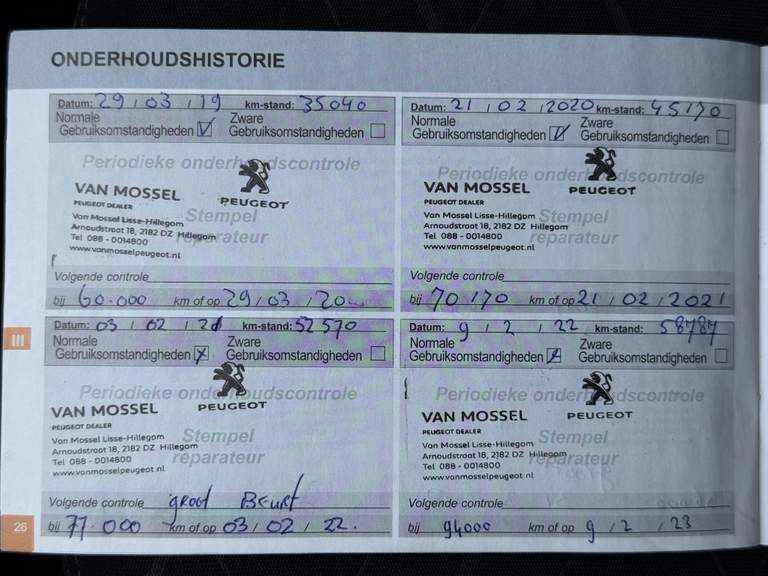 ONDERHOUDSHISTORIE
Datum: 29 / 03 / 19 km-stand: 35040
Normale Gebruiksomstandigheden
Zware Gebruiksomstandigheden
Periodieke onderhoudscontrole
VAN MOSSEL
PEUGEOT DEALER
PEUGEOT
Van Mossel Lisse-Hillegom
Arnoudstraat 18, 2182 DZ Hillegom
Tel 088 - 0014800
www.vanmosselpeugeot.nl
Stempel
reparateur
Volgende controle
bij 60.000 km of op 29 / 03 / 20
Datum: 21 / 02 / 2020 km-stand: 45170
Normale Gebruiksomstandigheden
Zware Gebruiksomstandigheden
Periodieke onderhoudscontrole
VAN MOSSEL
PEUGEOT DEALER
PEUGEOT
Van Mossel Lisse-Hillegom
Arnoudstraat 18, 2182 DZ Hillegom
Tel 088 - 0014800
www.vanmosselpeugeot.nl
Stempel
reparateur
Volgende controle
bij 70170 km of op 21 / 02 / 2021
III
Datum: 03 / 02 / 21 km-stand: 52570
Normale Gebruiksomstandigheden
Zware Gebruiksomstandigheden
Periodieke onderhoudscontrole
VAN MOSSEL
PEUGEOT DEALER
PEUGEOT
Van Mossel Lisse-Hillegom
Arnoudstraat 18, 2182 DZ Hillegom
Tel 088 - 0014800
www.vanmosselpeugeot.nl
Stempel
reparateur
Volgende controle groot BEURT
bij 77.000 km of op 03 / 02 / 22.
Datum: 9 / 2 / 22 km-stand: 58787
Normale Gebruiksomstandigheden
Zware Gebruiksomstandigheden
Periodieke onderhoudscontrole
VAN MOSSEL
PEUGEOT DEALER
PEUGEOT
Van Mossel Lisse-Hillegom
Arnoudstraat 18, 2182 DZ Hillegom
Tel 088 - 0014800
www.vanmosselpeugeot.nl
Stempel
reparateur
Volgende controle
bij 94000 km of op 9 / 2 / 23
26